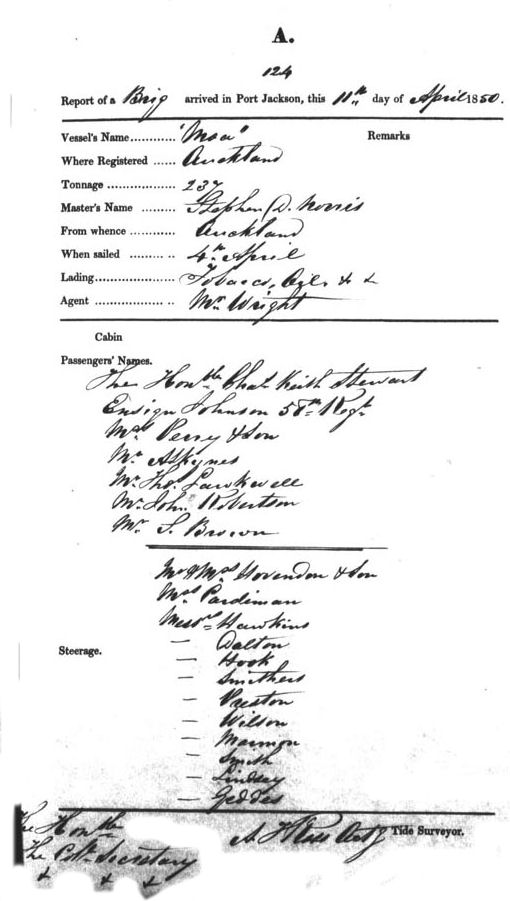 A.
124
Report of a Brig arrived in Port Jackson, this 11th day of April 1850.
Vessel's Name............ "Moa" Remarks
Where Registered ...... Auckland
Tonnage .................. 237
Master's Name ......... Stephen D. Norris
From whence ............ Auckland
When sailed ......... .. 4th April
Lading..................... Tobacco, Oil, & &
Agent .................. .. Mr. Wright
Cabin
Passengers' Names.
The Honble Chas. Keith Stewart
Ensign Johnson 58th Regt.
Mrs Perry & Son
Mr
Mr. Thos.
Mr. John Robertson
Mr. S. Brown
Mr & Mrs Hovendon & Son
Mrs Pardiman
Messrs Hawkins
— Dalton
— Hook
Steerage.
— Smithers
— Preston
— Wilson
— Marmon
— Smith
— Lindsey
— Geddes
The Honble
The Col. Secretary
& & &
Tide Surveyor.